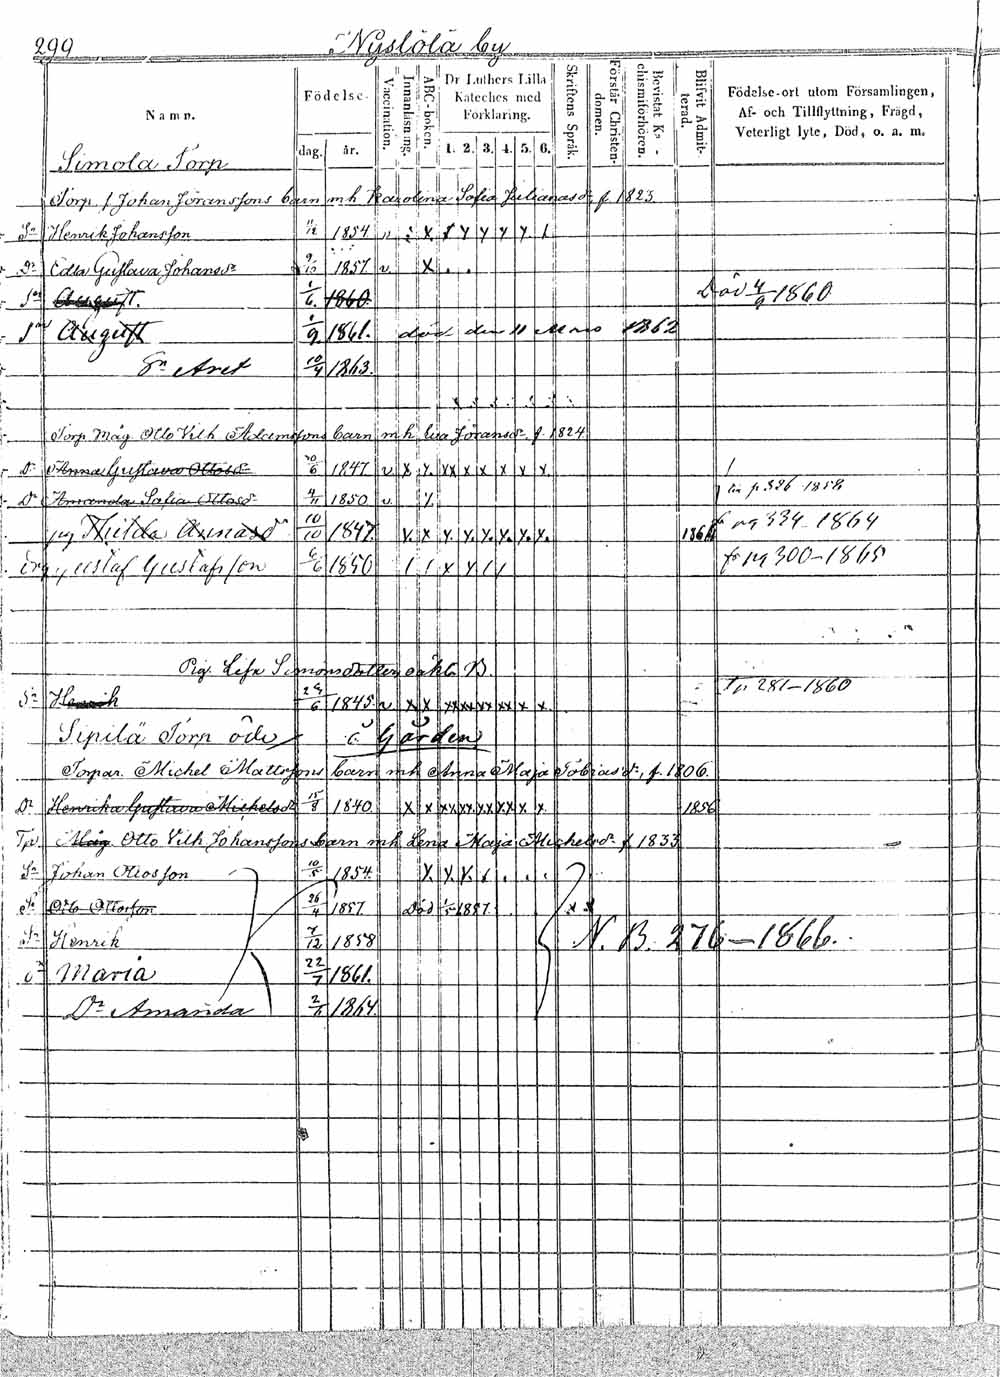 299 Nyslölä by
Namn.
Födelse-
dag. år.
Vaccination.
Innanläsning.
ABC-boken.
Dr Luthers Lilla Kateches med Förklaring.
1. 2. 3. 4. 5. 6.
Skriftens Språk.
Förstår Christendomen.
Bevistat Ks-chismiförhören.
Blifvit Admitterad.
Födelse-ort utom Församlingen,
Af- och Tillflyttning, Frägd,
Veterligt lyte, Död, o. a. m.
Simola Torp
Torp f Johan Göranssons barn m h Karolina Sofia Julianasdr f. 1823
Sn Henrik Johansson 11/12 1854 v x
Dr Edla Gustava Johansdr 9/10 1857 v x
Sn August. 1/6 1860. Död 4/9 1860
Sn August 1/9 1861. död den 11 Mars 1862
Sn Aret 10/4 1863.
Torp Måg Otto Vilh Adamssons barn m h Lisa Göransdr f. 1824
Dr Anna Gustava Ottosdr 20/6 1847 v x x xx x x x x x
Dr Amanda Sofia Ottosdr 4/11 1850 v x p 326 1858
pig Hilda Annasdr 10/10 1847 x x x x x x x x fr pg 334-1864
Drg. Gustaf Gustafsson 6/6 1850 / / x x / / fr pg 300-1865
Pig. Lisa Simonsdotters oäkta B.
Sn Henrik 29/6 1845 v x x xx xx xx x x x Tp 281-1860
Sipilä Torp öde å Gården
Torpar. Michel Mattssons barn m h Anna Maja Tobiasdr, f. 1806.
Dr Henrika Gustava Michelsdr 15/8 1840 x x xx xx xx xx x x 1856
Tp. Måg Otto Vilh Johanssons barn m h Lena Maja Michelsdr f 1833
Sn Johan Ottosson 10/5 1854 x x x
Sn Otto Ottosson 26/4 1857 Död 1857 x x
Sn Henrik 7/12 1858 N. B. 276-1866.
Dr Maria 22/7 1861.
Dr Amanda 1864.